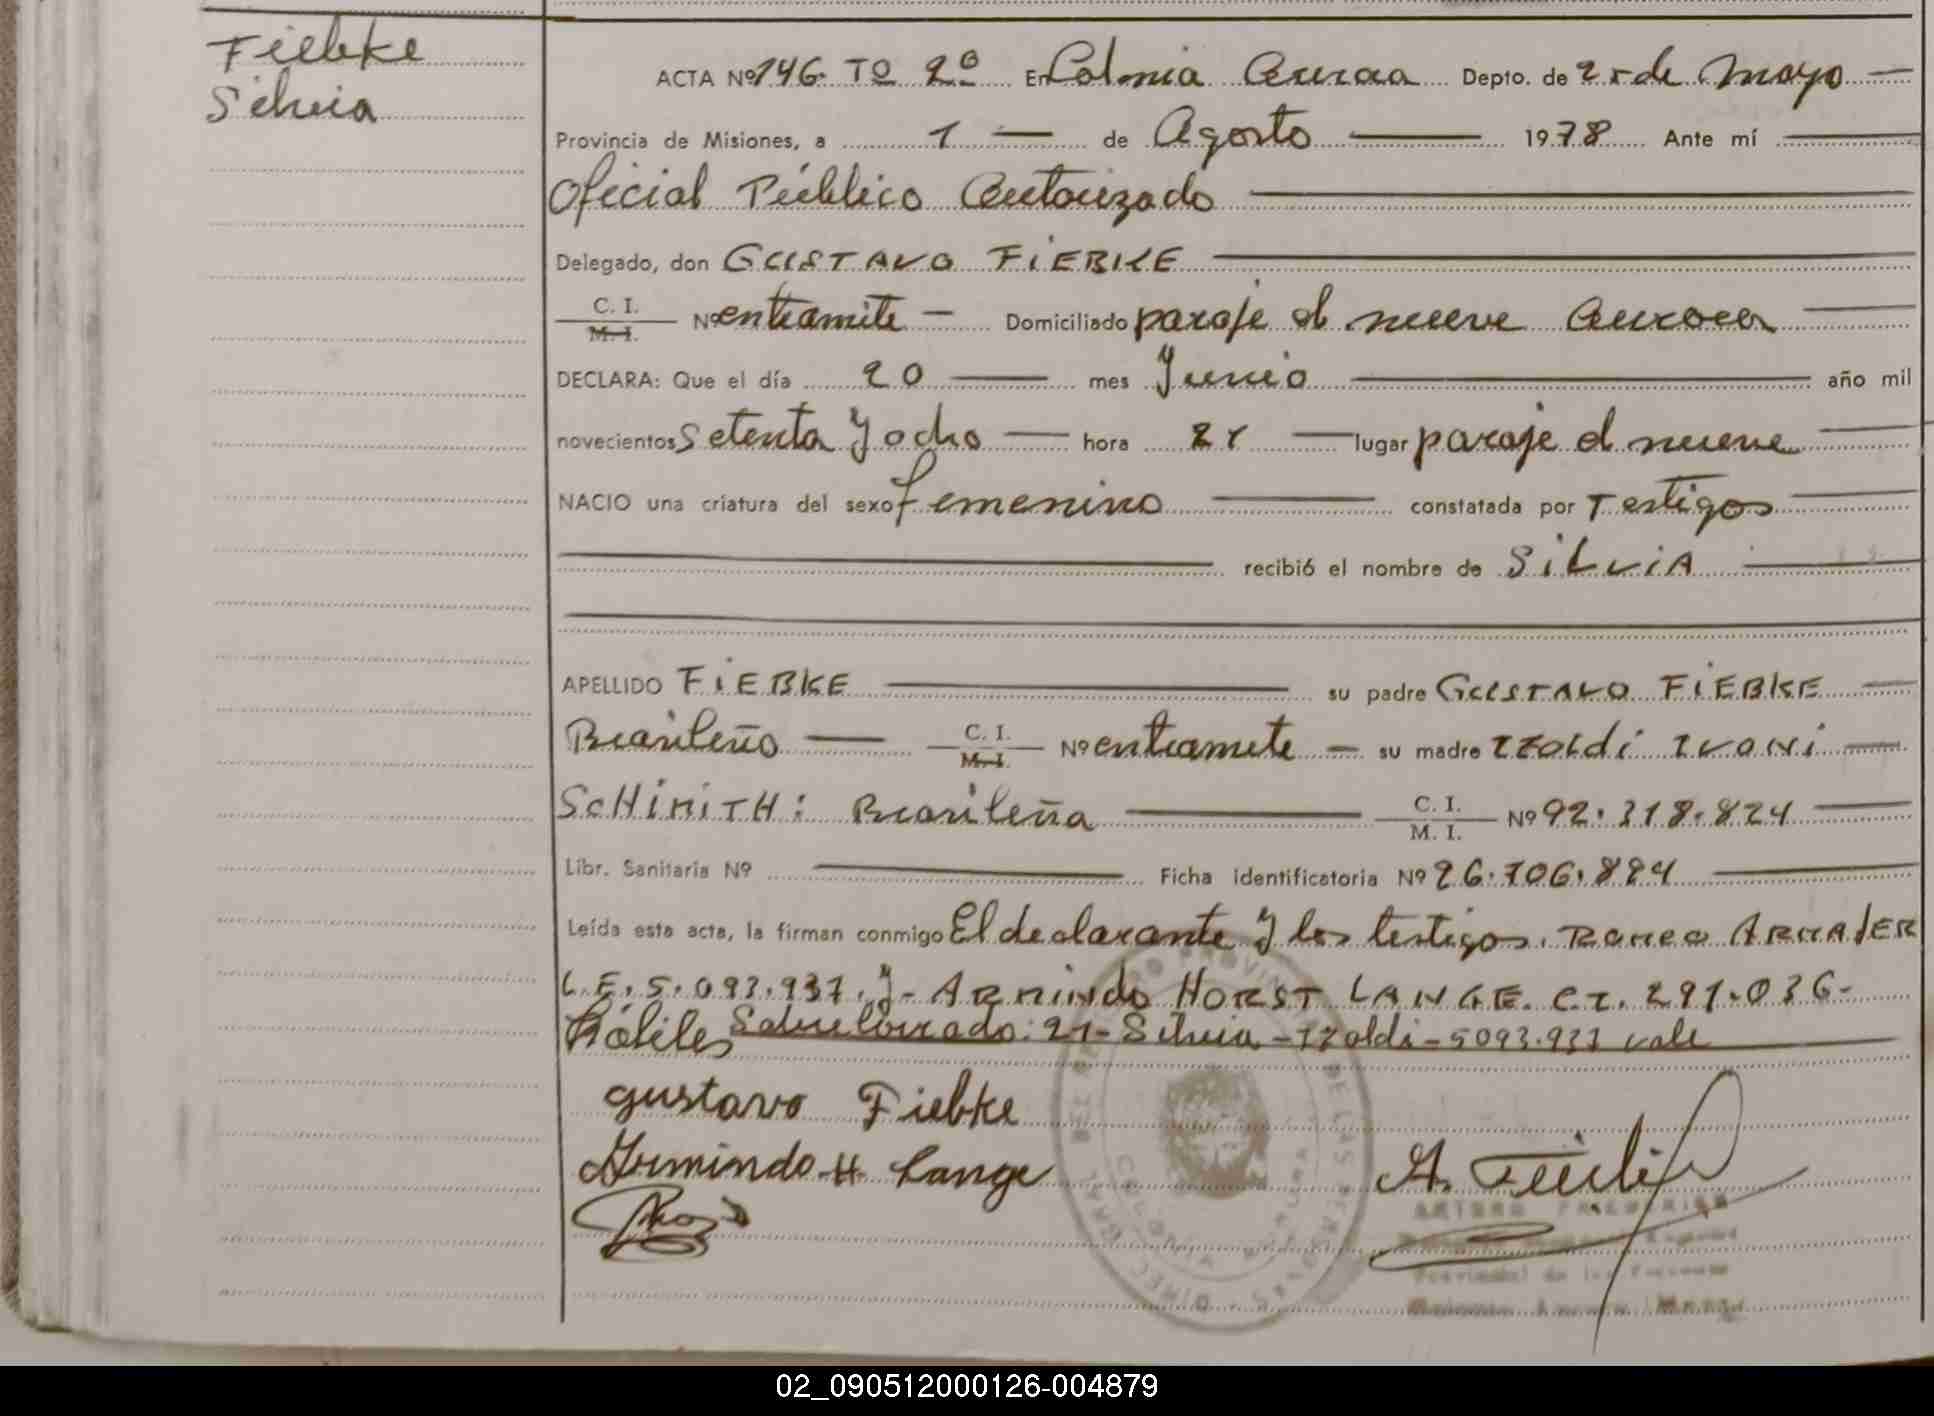 Fiebke
Silvia
ACTA Nº 146. Tº 2º En Colonia Aurora Depto. de 25 de Mayo
Provincia de Misiones, a 1 de Agosto 1978 Ante mí
Oficial Público Autorizado
Delegado, don GUSTAVO FIEBKE
C. I.
M. I. Nº entramite Domiciliado paraje el nueve Aurora
DECLARA: Que el día 20 mes Junio año mil
novecientos Setenta y ocho hora 21 lugar paraje el nueve
NACIO una criatura del sexo femenino constatada por Testigos
recibió el nombre de SILVIA
APELLIDO FIEBKE su padre GUSTAVO FIEBKE
Brasileño C. I.
M. I. Nº entramite su madre IZOLDI IVONI
SCHIMITH: Brasileña C. I.
M. I. Nº 92.318.824
Libr. Sanitaria Nº Ficha identificatoria Nº 26.706.824
Leída esta acta, la firman conmigo El declarante y los testigos.
L.E. 5.093.937. y - ARMINDO HORST LANGE. C.I. 291.036-
Hábiles Sobreborrado: 21-Silvia-Izoldi-5093.937 vale
gustavo Fiebke
Armindo H. Lange
COLONIA AURORA
02_090512000126-004879